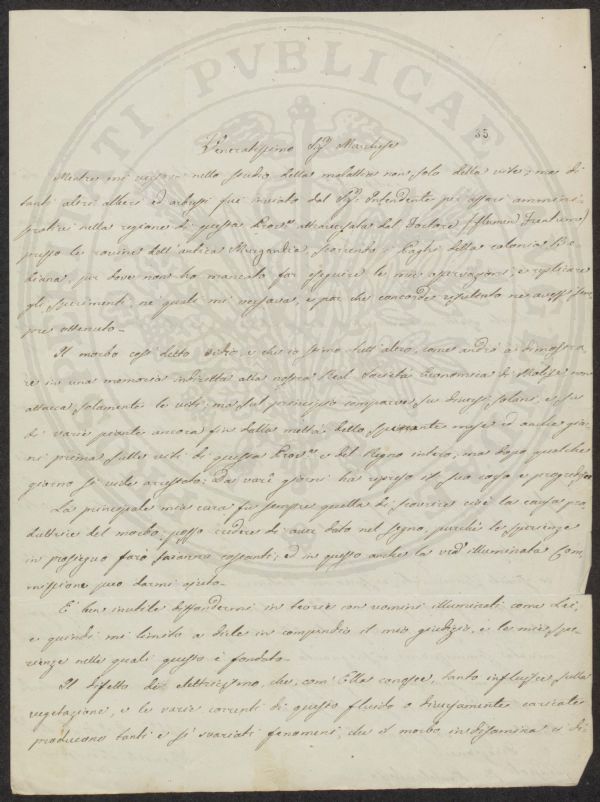 35
Veneratissimo Sig. Marchese
Mentre mi versava nello studio della malattia non solo della vite, ma di
tanti altri alberi ed arbusti fui inviato dal Sig. Intendente per affari ammini-
strativi nella regione di questa Prov. attraversata dal Fortore (flumen Frentanum)
presso le rovine dell'antica Murgandia, scorrendo i Paghi della colonia Be-
biana, per dove non ho mancato far eseguire le mie operazioni, e replicare
gli sperimenti, ne' quali mi versava, e par che concorde risultato ne avessi sem-
pre ottenuto.
Il morbo così detto oidio, e che io stimo tutt'altro, come andrà a dimostra-
re in una memoria indiretta alla nostra Real Società Economica di Molise non
attacca solamente le viti, ma sul principio comparve su diversi solani, e su
di varie piante ancora fin dalla metà dello spirante mese ed anche gior-
ni prima sulle viti di questa Prov. e del Regno intero, ma dopo qualche
giorno si vide arrestato: Da varî giorni ha ripreso il suo corso e progredisce
La principale mia cura fu sempre quella di scovrire cioè la causa pro-
duttrice del morbo; posso credere di aver dato nel segno, purchè le sperienze
in proseguo farò saranno costanti; ed in questo anche la illuminata Com-
missione può darmi ajuto.
È ben inutile diffondermi in teorie con uomini illuminati come Lei,
e quindi mi limito a dirle in compendio il mio giudizio, e le mie spe-
rienze nelle quali questo è fondato.
Il difetto di elettricismo, che, com'Ella conosce, tanto influisce sulla
vegetazione, e le varie correnti di questo fluido o diversamente caricate
producono tanti e sì svariati fenomeni, che il morbo in disamina è di